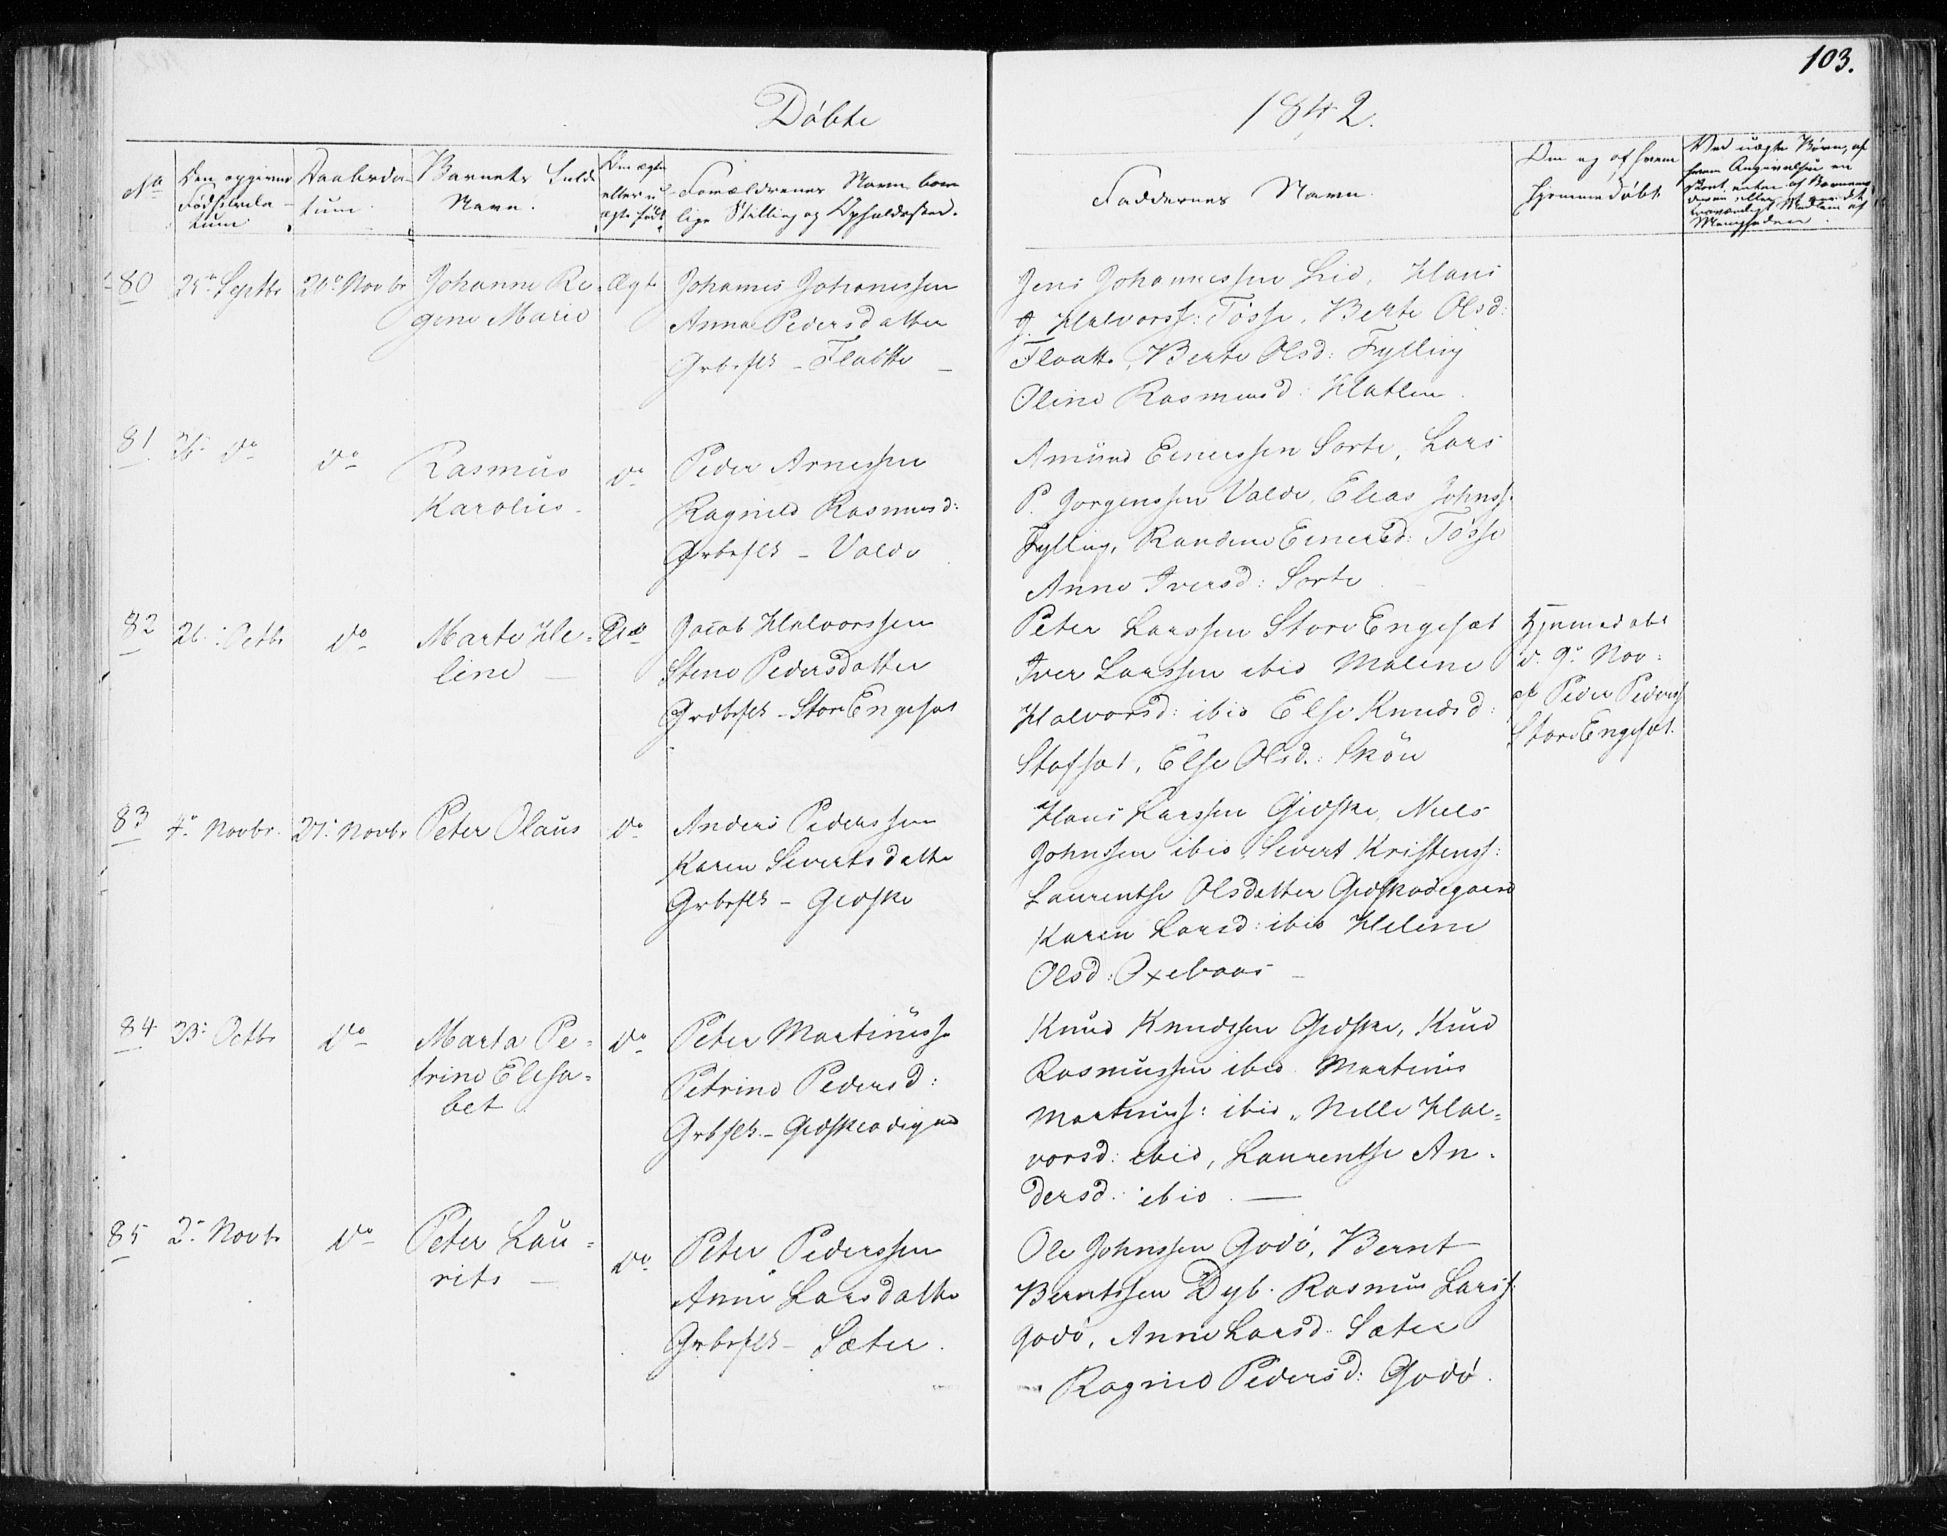 103.
Døbte 1842.
No
Den opgivne Fødselsdatum
Daabsdatum
Barnets fulde Navn.
Om ægte eller uægte født
Forældrenes Navn, borgerlige Stilling og Opholdssted.
Faddernes Navn.
Om og af hvem hjemmedøbt
80 25de Septbr 20de Novbr Johanne Re- Ægte Johannes Johannessen
gine Marie Anna Pedersdatter
Grbrflk - Flaatte -
Jens Johannessen Lid, Hans
J. Halvorss: Tøsse, Berte Olsd:
Floatte, Berte Olsd: Fylling
Oline Rasmusd: Hatlen.
81 26 do do Rasmus do Peder Arnessen
Karolius - Ragnild Rasmusd:
Grbrflk - Valde
Amund Einerssen Sorte, Lars
P. Jorgenssen Valde, Elias Johnss.
Fylling, Randine Einersd: Tøsse
Anne Iversd: Sorte
82 26 Octbr do Marte He- do Jacob Halvorssen
line - Stene Pedersdatter
Grdbrflk - Store Engesæt
Peter Larssen Store Engesæt
Iver Larssen ibid Malene
Halvorsd: ibid Else Knudsd:
Stafsæt, Else Olsd.: Skön
Hjemmedøbt
d. 9de Nov:
af Peder Pederss
Store Engesæt.
83 4de Novbr. 27. Novbr Peter Olaus do Anders Pederssen
Karen Sivertsdatter
Grbrflk - Giøske
Hans Larssen Giøske, Niels
Johnssen ibid, Sivert Kristenss:
Laurentse Olsdatter Giøskødegaard
Karen Larsd: ibid Helene
Olsd: Oxebaas -
84 23: Octbr do Marta Pe- do Peter Martinuss
trine Elisa- Petrine Pedersd:
bet Grbflk. - Giøskeødigrd
Knud Knudssen Giøske, Knud
Rasmussen ibid. Martinus
Martinuss: ibid, Nille Hal-
vorsd: ibid, Laurentse An-
dersd: ibid. -
85 2. Novbr do Peter Lau- do Peter Pederssen
rits - Anne Larsdatter
Grbrflk - Sæter.
Ole Johnssen Godø, Bernt
Berntssen Dyb. Rasmus Larss:
Godø, Anne Larsd: Sæter
Ragnild Pedersd: Godø.